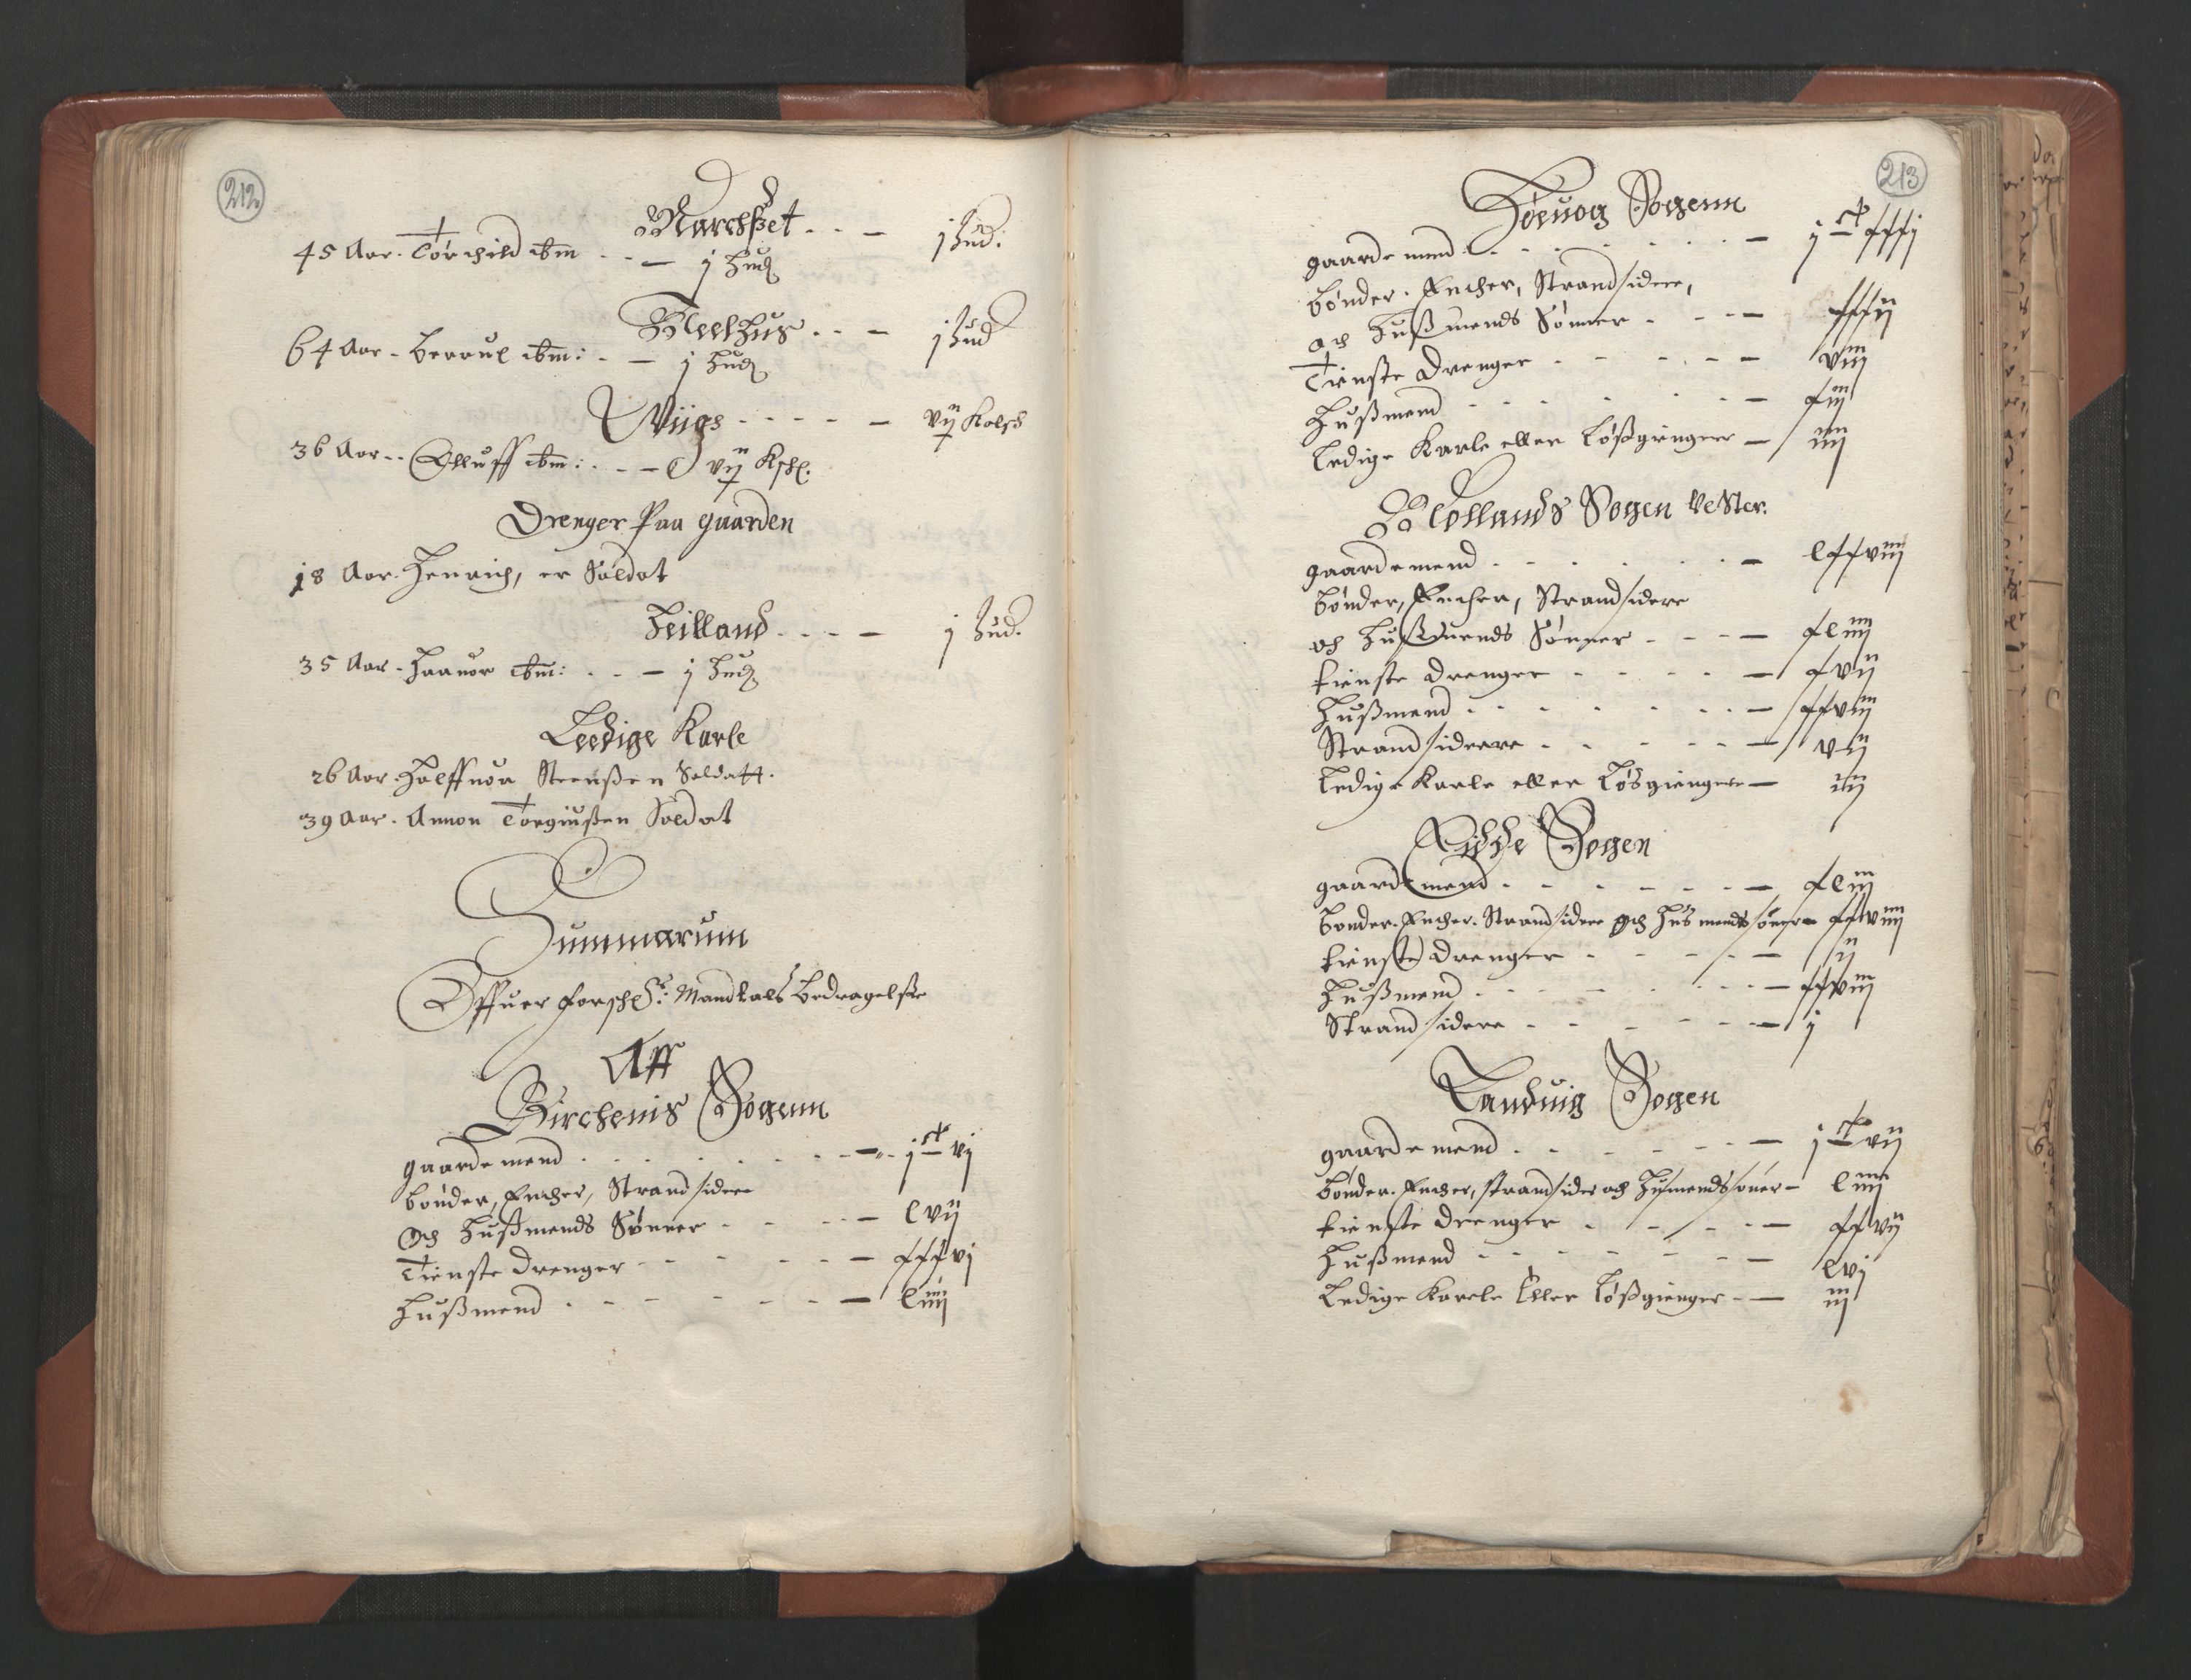 212
Marchset - - - j hud.
45 Aar. Torchild ibm - - - j hud
Bleehus - - - j hud
64 Aar - Beroul ibm: - - j hud
Wiigs - - - - - vij Kalf
36 Aar - Olluff ibm: - - - vij Kshl.
Drenger Paa gaarden
18 Aar. Henrich, er Soldat
Heilland - - - - j hud.
35 Aar - Haauor ibm: - - - j hud
Leedige Karle
26 Aar. Halffuor Steensßen Soldatt.
39 Aar. Annon Torgiusßen Soldat
Summarum
Offuer forschr: Mandtals Bedragelße
Aff
Birchenis Sogenn
gaardemend - - - - jC vj
Bønder, Encher, Strandsidere
Och Hußmends Sønner - - - - lvij
Tienste drenger - - - - xxxvj
Hußmend - - - - liiij
213
Høeuog Sogenn
gaardemend - - - - jC xxxj
Bønder. Encher, Strandsidere,
och Hußmends Sønner - - - - xxxij
Tienste Drenger - - - - viij
Hußmend - - - - xiij
Ledige Karle eller Løßgiengere - iiij
Vester.
gaardemend - - - - lxxviij
Bønder, Encher, Strandsidere
och Hußmends Sønner - - - - xliiij
tienste drenger - - - - xvij
Hußmend - - - - xxviij
Strandsidere - - - - vij
Ledige Karle eller Løsgiengere - iij
Eidde Sogen
gaardemend - - - - xliij
Bønder. Encher. Strandsidere och Husmends sønner - xxviiij
tienste drenger - - - - ij
Hußmend - - - - xxviij
Strandsidere - - - - j
Landuig Sogen
gaardemend - - - - jC vij
Bønder. Encher, strandsider och Husmends sønner - liiij
tienste drenger - - - - xxvij
Hußmend - - - - lvj
Ledige Karle Eller Løßgienger - - iij